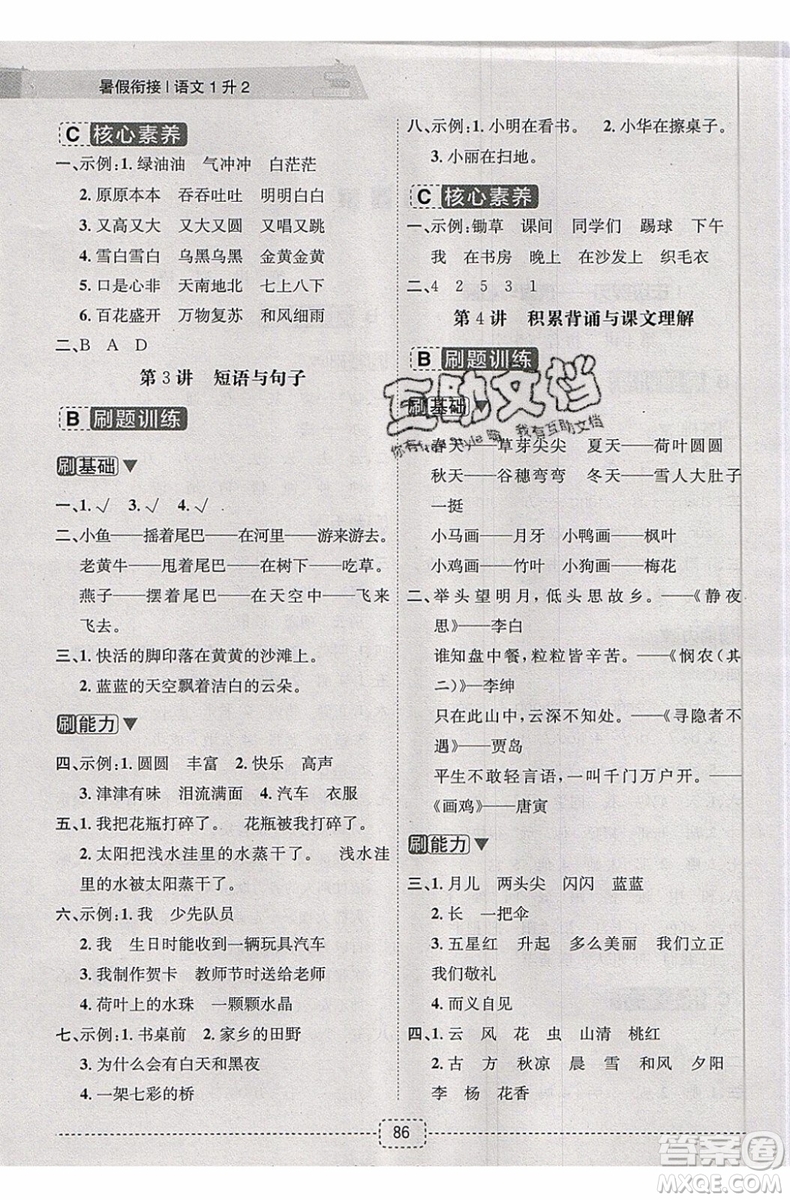 暑假衔接 | 语文 1 升 2
C 核心素养
一、示例:1. 绿油油　气冲冲　白茫茫
2. 原原本本　吞吞吐吐　明明白白
3. 又高又大　又大又圆　又唱又跳
4. 雪白雪白　乌黑乌黑　金黄金黄
5. 口是心非　天南地北　七上八下
6. 百花盛开　万物复苏　和风细雨
二、B　A　D
第 3 讲　短语与句子
B 刷题训练
刷基础
一、1. √　3. √　4. √
二、小鱼——摇着尾巴——在河里——游来游去。
老黄牛——甩着尾巴——在树下——吃草。
燕子——摆着尾巴——在天空——飞来
飞去。
三、1. 快活的脚印落在黄黄的沙滩上。
2. 蓝蓝的天空飘着洁白的云朵。
刷能力
四、示例:1. 圆圆　丰富　2. 快乐　高声
3. 津津有味　泪流满面　4. 汽车　衣服
五、1. 我把花瓶打碎了。　花瓶被我打碎了。
2. 太阳把浅水洼里的水蒸干了。　浅水洼
里的水被太阳蒸干了。
六、示例:1. 我　少先队员
2. 我　生日时能收到一辆玩具汽车
3. 我制作贺卡　教师节时送给老师
4. 荷叶上的水珠　一颗颗水晶
七、示例:1. 书桌前　2. 家乡的田野
3. 为什么会有白天和黑夜
4. 一架七彩的桥
八、示例:1. 小明在看书。　2. 小华在擦桌子。
3. 小丽在扫地。
C 核心素养
一、示例:锄草　课间　同学们　踢球　下午
我　在书房　晚上　在沙发上　织毛衣
二、4　2　5　3　1
第 4 讲　积累背诵与课文理解
B 刷题训练
刷基础
互助文档
我有互助文档
春天——草芽尖尖　夏天——荷叶圆圆
秋天——谷穗弯弯　冬天——雪人大肚子
一挺
小马画——月牙　小鸭画——枫叶
小鸡画——竹叶　小狗画——梅花
二、举头望明月,低头思故乡。——《静夜
思》——李白
谁知盘中餐,粒粒皆辛苦。——《悯农(其
二)》——李绅
只在此山中,云深不知处。——《寻隐者不
遇》——贾岛
平生不敢轻言语,一叫千门万户开。——
《画鸡》——唐寅
刷能力
三、1. 月儿　两头尖　闪闪　蓝蓝
2. 长　一把伞
3. 五星红　升起　多么美丽　我们立正
我们敬礼
4. 而义自见
四、1. 云　风　花　虫　山清　桃红
2. 古　方　秋凉　晨　雪　和风　夕阳
李　杨　花香
86
答案圈
MXQE.COM